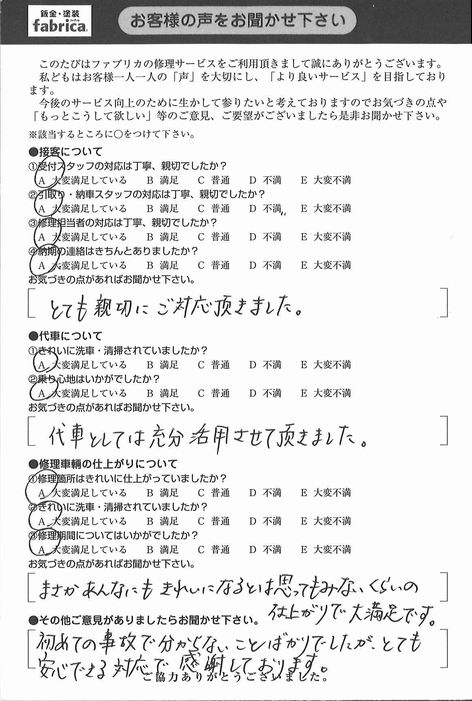 鈑金・塗装
fabrica.
お客様の声をお聞かせ下さい
このたびはファブリカの修理サービスをご利用頂きまして誠にありがとうございます。
私どもはお客様一人一人の「声」を大切にし、「より良いサービス」を目指しており
ます。
今後のサービス向上のために生かして参りたいと考えておりますのでお気づきの点や
「もっとこうして欲しい」等のご意見、ご要望がございましたら是非お聞かせ下さい。
※該当するところに○をつけて下さい。
●接客について
①受付スタッフの対応は丁寧、親切でしたか？
A 大変満足している B 満足 C 普通 D 不満 E 大変不満
②引取り・納車スタッフの対応は丁寧、親切でしたか？
A 大変満足している B 満足 C 普通 D 不満 E 大変不満
③修理担当者の対応は丁寧、親切でしたか？
A 大変満足している B 満足 C 普通 D 不満 E 大変不満
④納期の連絡はきちんとありましたか？
A 大変満足している B 満足 C 普通 D 不満 E 大変不満
お気づきの点があればお聞かせ下さい。
とても親切にご対応頂きました。
●代車について
①きれいに洗車・清掃されていましたか？
A 大変満足している B 満足 C 普通 D 不満 E 大変不満
②乗り心地はいかがでしたか？
A 大変満足している B 満足 C 普通 D 不満 E 大変不満
お気づきの点があればお聞かせ下さい。
代車としては充分活用させて頂きました。
●修理車輌の仕上がりについて
①修理箇所はきれいに仕上がっていましたか？
A 大変満足している B 満足 C 普通 D 不満 E 大変不満
②きれいに洗車・清掃されていましたか？
A 大変満足している B 満足 C 普通 D 不満 E 大変不満
③修理期間についてはいかがでしたか？
A 大変満足している B 満足 C 普通 D 不満 E 大変不満
お気づきの点があればお聞かせ下さい。
まさかあんなにもきれいになるとは思ってもみないくらいの
仕上がりで大満足です。
●その他ご意見がありましたらお聞かせ下さい。
初めての事故で分からないことばかりでしたが、とても
安心できる対応で感謝しております。
ご協力ありがとうございました。